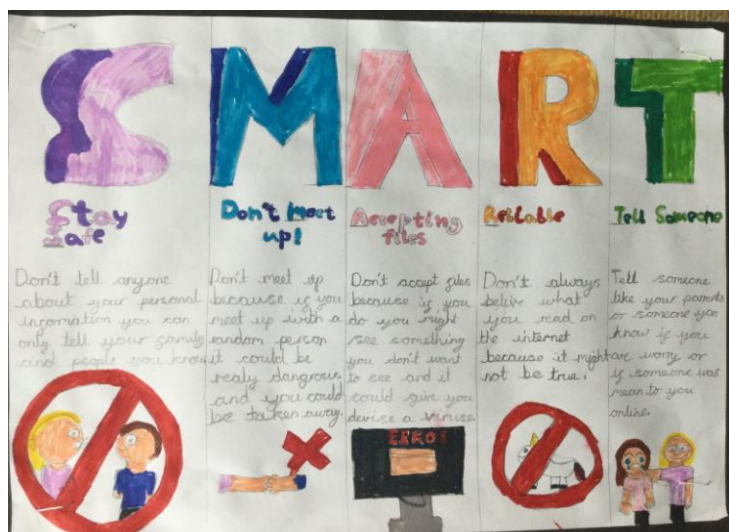 SMART
Stay
Safe
Don't tell anyone
about your personal
information you can
only tell your family
and people you know
Don't Meet
up!
Don't meet up
because if you
meet up with a
random person
it could be
realy dangrous
and you could
be taken away.
Accepting
files
Don't accept files
because if you
do you might
see something
you don't want
to see and it
could give you
devise a viruse
Reliable
Don't always
belive what
you read on
the internet
because it might
not be true.
Tell Someone
Tell someone
like your parents
or someone you
know if you
are worry or
if someone was
mean to you
online.